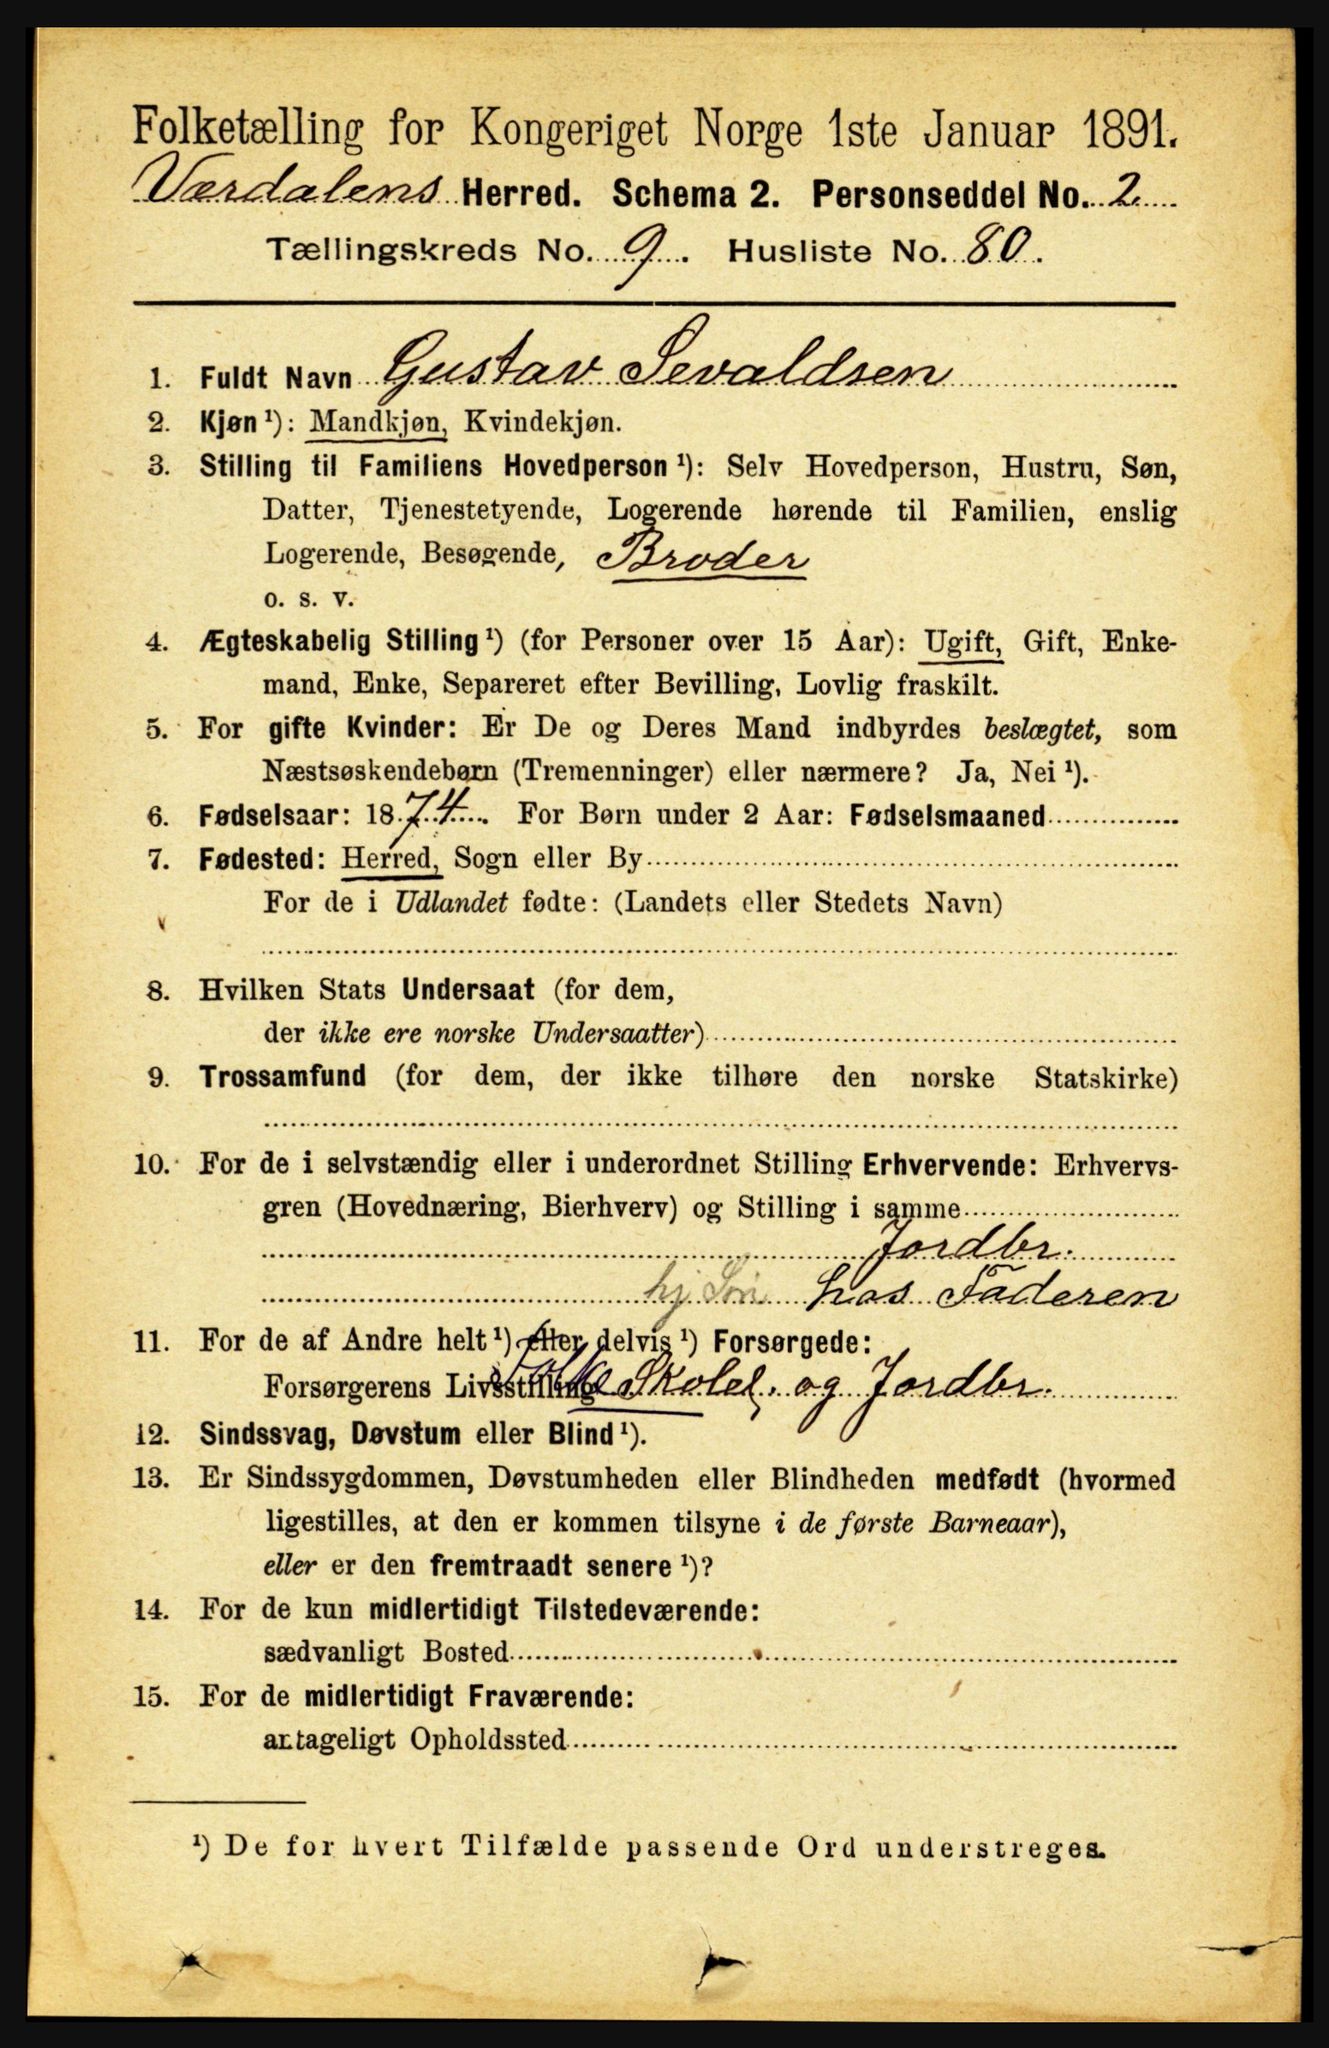 Folketælling for Kongeriget Norge 1ste Januar 1891.
Værdalens Herred. Schema 2. Personseddel No. 2
Tællingskreds No. 9. Husliste No. 80.
1. Fuldt Navn Gustav Sevaldsen
2. Kjøn ¹): Mandkjøn, Kvindekjøn.
3. Stilling til Familiens Hovedperson ¹): Selv Hovedperson, Hustru, Søn,
Datter, Tjenestetyende, Logerende hørende til Familien, enslig
Logerende, Besøgende, Broder
o. s. v.
4. Ægteskabelig Stilling ¹) (for Personer over 15 Aar): Ugift, Gift, Enke-
mand, Enke, Separeret efter Bevilling, Lovlig fraskilt.
5. For gifte Kvinder: Er De og Deres Mand indbyrdes beslægtet, som
Næstsøskendebørn (Tremenninger) eller nærmere? Ja, Nei ¹).
6. Fødselsaar: 1874. For Børn under 2 Aar: Fødselsmaaned
7. Fødested: Herred, Sogn eller By
For de i Udlandet fødte: (Landets eller Stedets Navn)
8. Hvilken Stats Undersaat (for dem,
der ikke ere norske Undersaatter)
9. Trossamfund (for dem, der ikke tilhøre den norske Statskirke)
10. For de i selvstændig eller i underordnet Stilling Erhvervende: Erhvervs-
gren (Hovednæring, Bierhverv) og Stilling i samme
Jordbr.
hj Søn hos Faderen
11. For de af Andre helt ¹) eller delvis ¹) Forsørgede:
Forsørgerens Livsstilling Skolel. og Jordbr.
12. Sindssvag, Døvstum eller Blind ¹).
13. Er Sindssygdommen, Døvstumheden eller Blindheden medfødt (hvormed
ligestilles, at den er kommen tilsyne i de første Barneaar),
eller er den fremtraadt senere ¹)?
14. For de kun midlertidigt Tilstedeværende:
sædvanligt Bosted
15. For de midlertidigt Fraværende:
antageligt Opholdssted
¹) De for hvert Tilfælde passende Ord understreges.